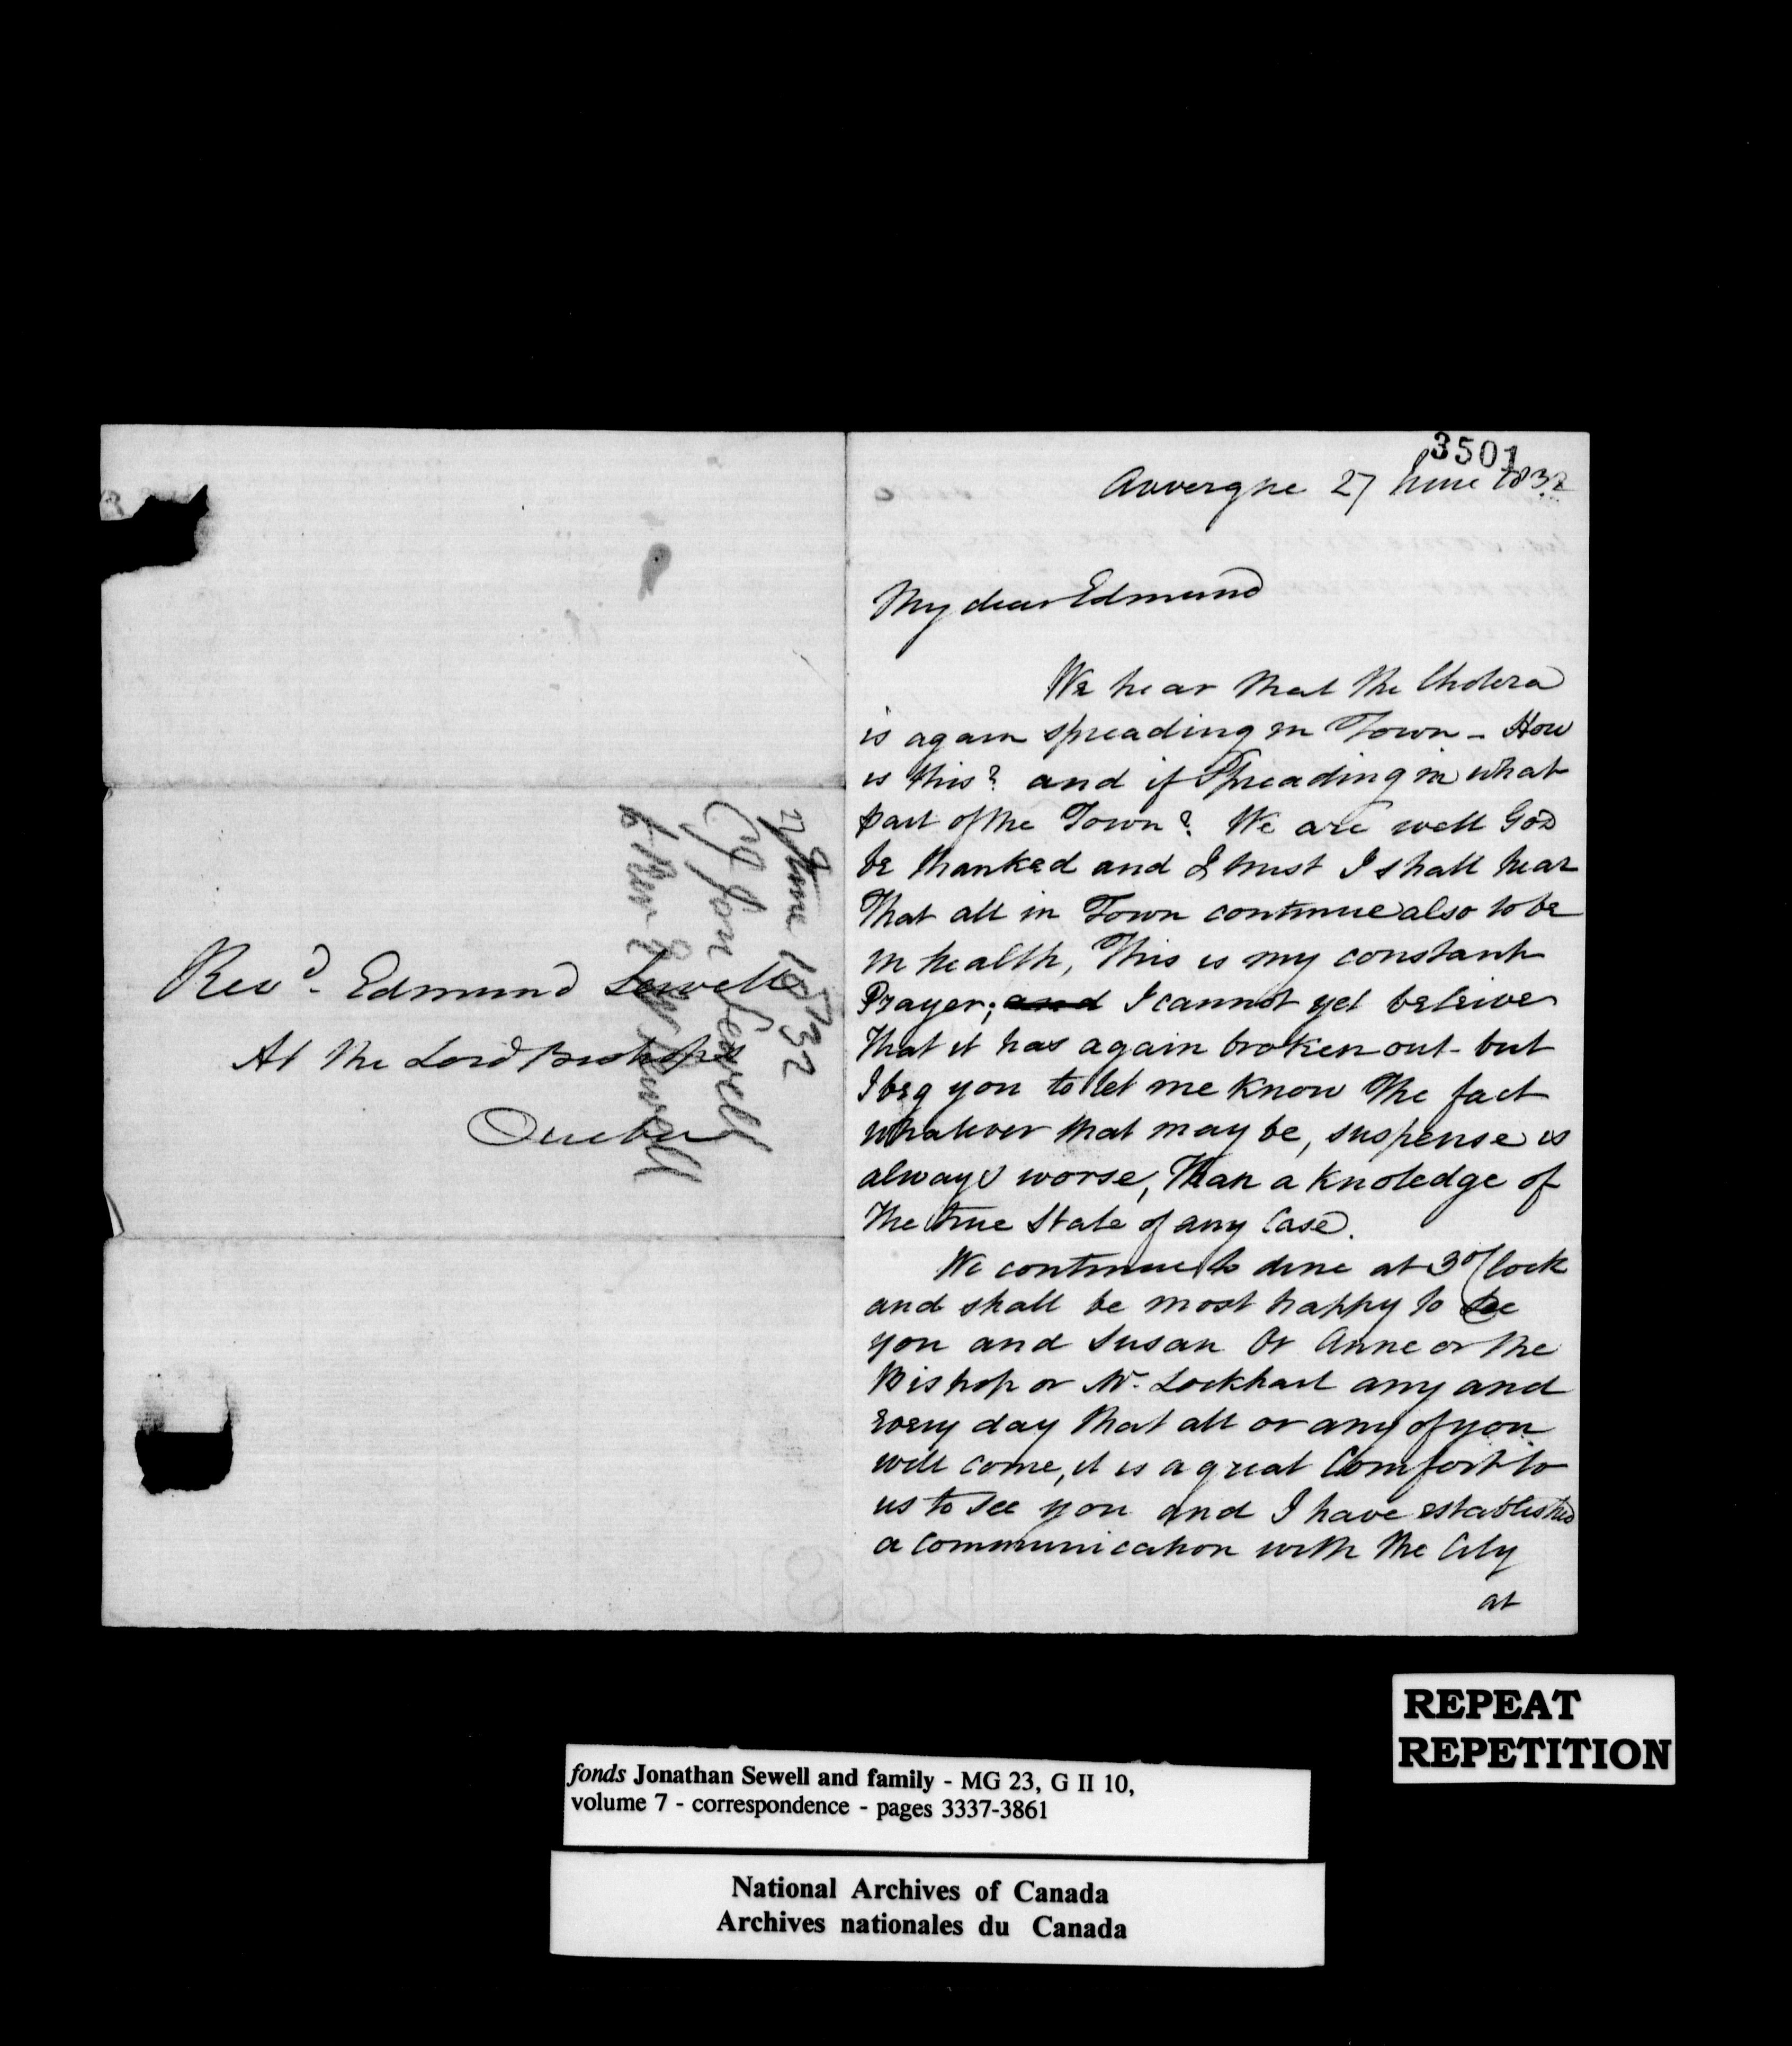 Revd. Edmund Sewell
At the Lord Bishops
Quebec
27 June 1832
CJ Jon Sewell
to Rev E W Sewell
3501
Auvergne 27 June 1832
My dear Edmund
We hear that the Cholera
is again spreading in Town - How
is this? and if Spreading in what
part of the Town? We are well God
be thanked and I trust I shall hear
That all in Town continue also to be
in health, This is my constant
Prayer; and I cannot yet beleive
that it has again broken out - but
I beg you to let me know The fact
whatever that may be, suspense is
always worse, Than a knoledge of
The true State of any Case.
We continue to dine at 3 o/Clock
and shall be most happy to see
you and Susan Or Anne or the
Bishop or Mr. Lockhart any and
every day that all or any of you
will come, it is a great Comfort to
us to see you and I have established
a Communication with the City
at
REPEAT
REPETITION
fonds Jonathan Sewell and family - MG 23, G II 10,
volume 7 - correspondence - pages 3337-3861
National Archives of Canada
Archives nationales du Canada